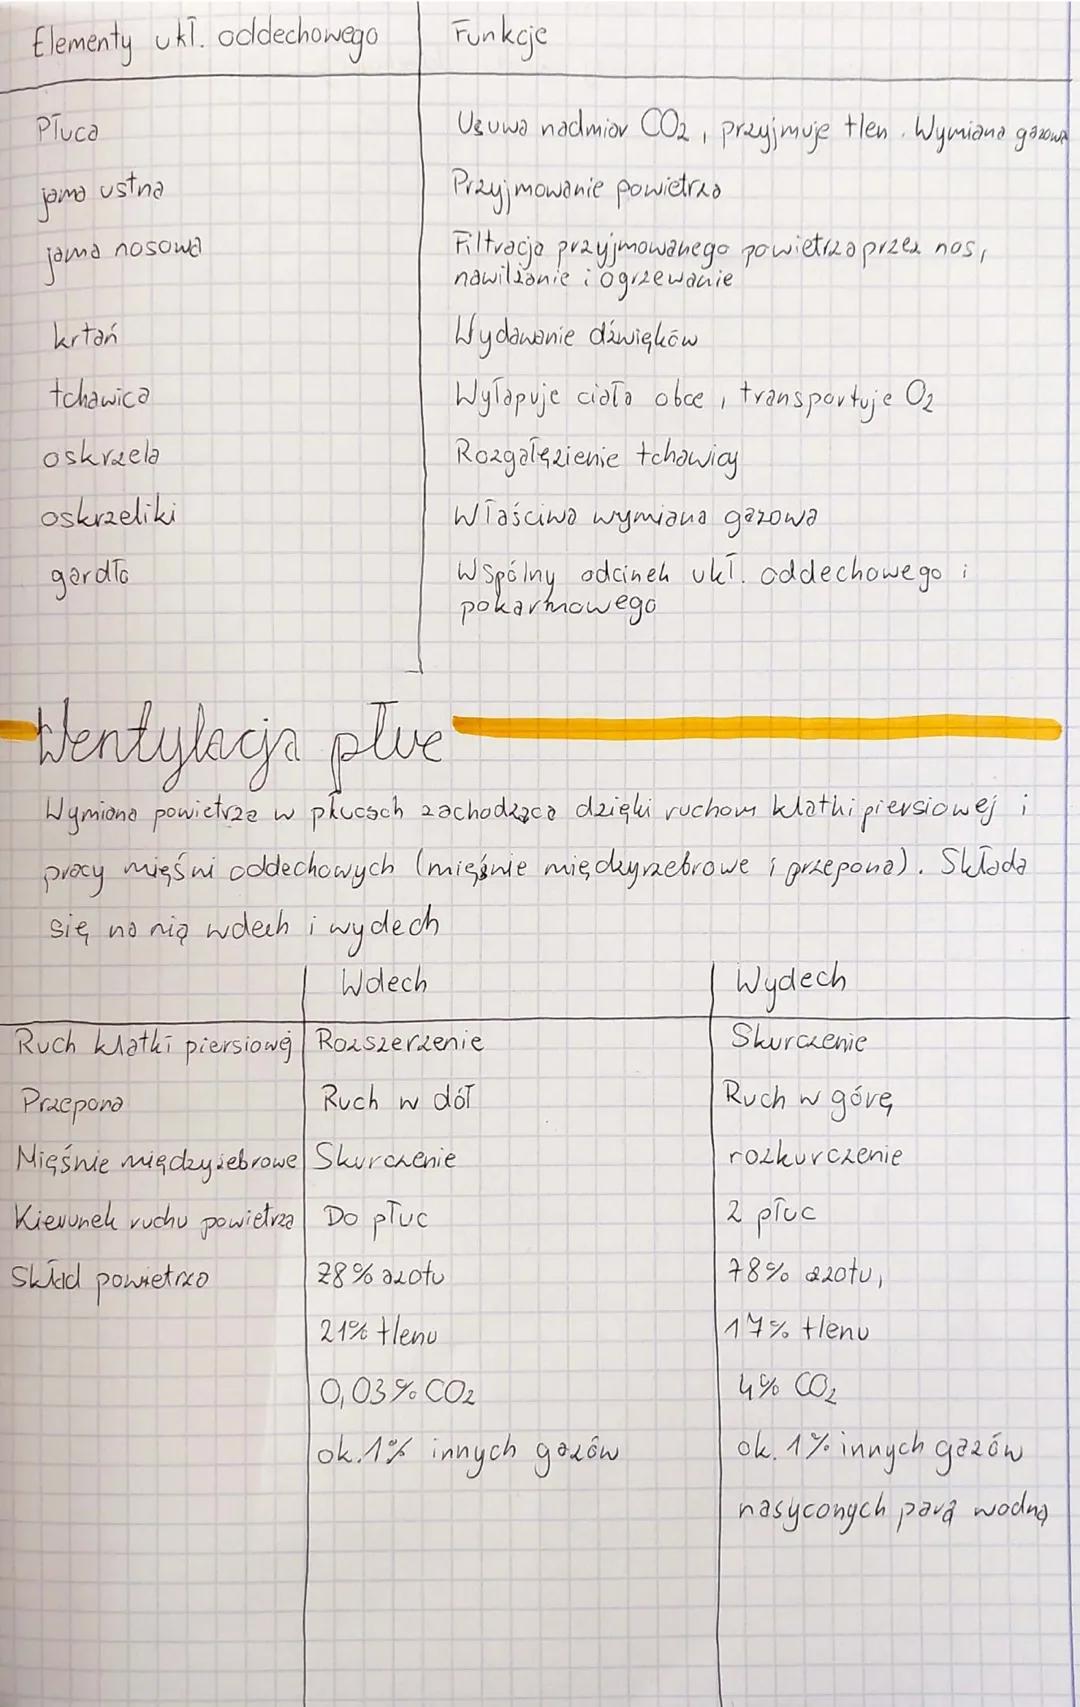 Elementy ukł. oddechowego Funkcje
Płuca Usuwa nadmiar CO2, przyjmuje tlen. Wymiana gazowa
jama ustna Przyjmowanie powietrza
jama nosowa Filtracja przyjmowanego powietrza przez nos,
nawilżanie i ogrzewanie
krtań Wydawanie dźwięków
tchawica Wyłapuje ciała obce, transportuje O2
oskrzela Rozgałęzienie tchawicy
oskrzeliki Właściwa wymiana gazowa
gardło Wspólny odcinek ukł. oddechowego i
pokarmowego
Wentylacja płuc
Wymiana powietrza w płucach zachodząca dzięki ruchom klatki piersiowej i
pracy mięśni oddechowych (mięśnie międzyrzebrowe i przepona). Składa
się na nią wdech i wydech
Wdech Wydech
Ruch klatki piersiowej Rozszerzenie Skurczenie
Przepona Ruch w dół Ruch w górę
Mięśnie międzyżebrowe Skurczenie rozkurczenie
Kierunek ruchu powietrza Do płuc Z płuc
Skład powietrza 78% azotu 78% azotu,
21% tlenu 17% tlenu
0,03% CO2 4% CO2
ok. 1% innych gazów ok. 1% innych gazów
nasyconych parą wodną